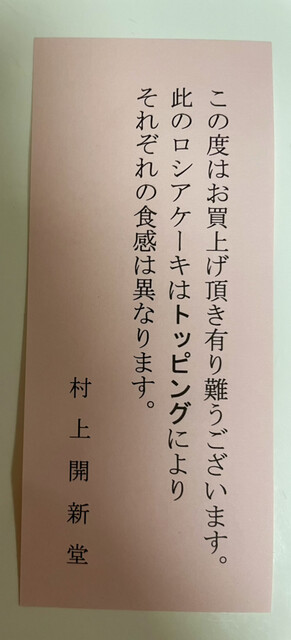 この度はお買上げ頂き有り難うございます。
此のロシアケーキはトッピングにより
それぞれの食感は異なります。
村上開新堂